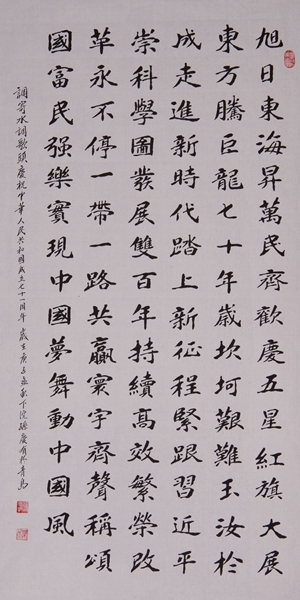 旭日東海昇萬民齊歡慶五星紅旗大展
東方騰巨龍七十年歲坎坷艱難玉汝於
成走進新時代踏上新征程緊跟習近平
崇科學圖發展雙百年持續高效繁榮改
革永不停一帶一路共贏寰宇齊聲稱頌
國富民强樂實現中國夢舞動中國風
調寄水調歌頭慶祝中華人民共和國成立七十一周年 歲在庚子孟秋下浣 於青島